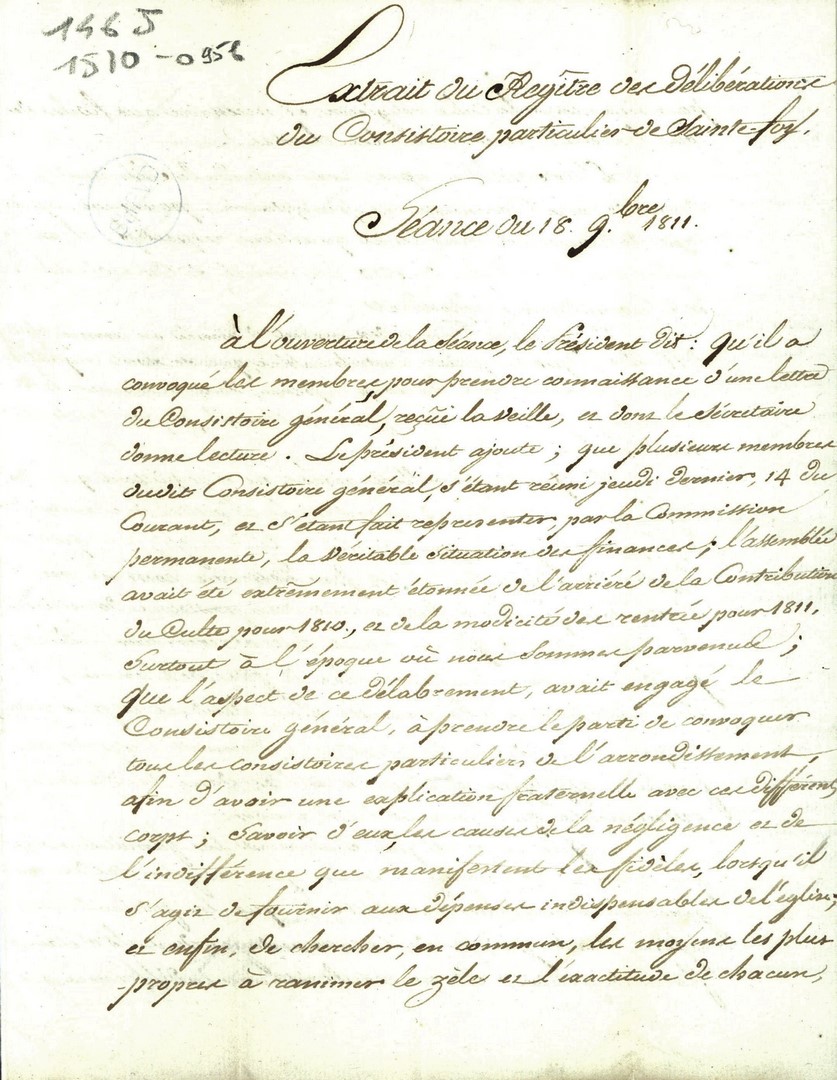 1446 J
1510-0956
Extrait du Regître des délibérations
du Consistoire particulier de Sainte-foy.
Séance du 18. 9.bre 1811.
à l'ouverture de la Séance, le Président dit : qu'il a
convoqué les membres pour prendre connaissance d'une lettre
du Consistoire général, reçue la veille, et dont le Sécretaire
donne lecture. Le président ajoute ; que plusieurs membres
dudit Consistoire général, s'étant réuni jeudi dernier, 14 du
Courant, et S'étant fait representer, par la Commission
permanente, la veritable Situation des finances ; l'assemblée
avait été extrêmement étonnée de l'arriéré de la Contribution
du Culte pour 1810., et de la modicité des rentrée pour 1811.
Surtout à l'époque où nous Sommes parvenus ;
que l'aspect de ce délabrement, avait engagé le
Consistoire général, à prendre le parti de convoquer
tous les consistoires particuliers de l'arrondissement,
afin d'avoir une explication fraternelle avec ces différents
corps ; Savoir d'eux, les causes de la négligence et de
l'indifférence que manifestent les fidèles, lorsqu'il
S'agit de fournir aux dépenses indispensables de l'église ;
et enfin, de chercher, en commun, les moyens les plus
propres à ranimer le zèle et l'exactitude de chacun,